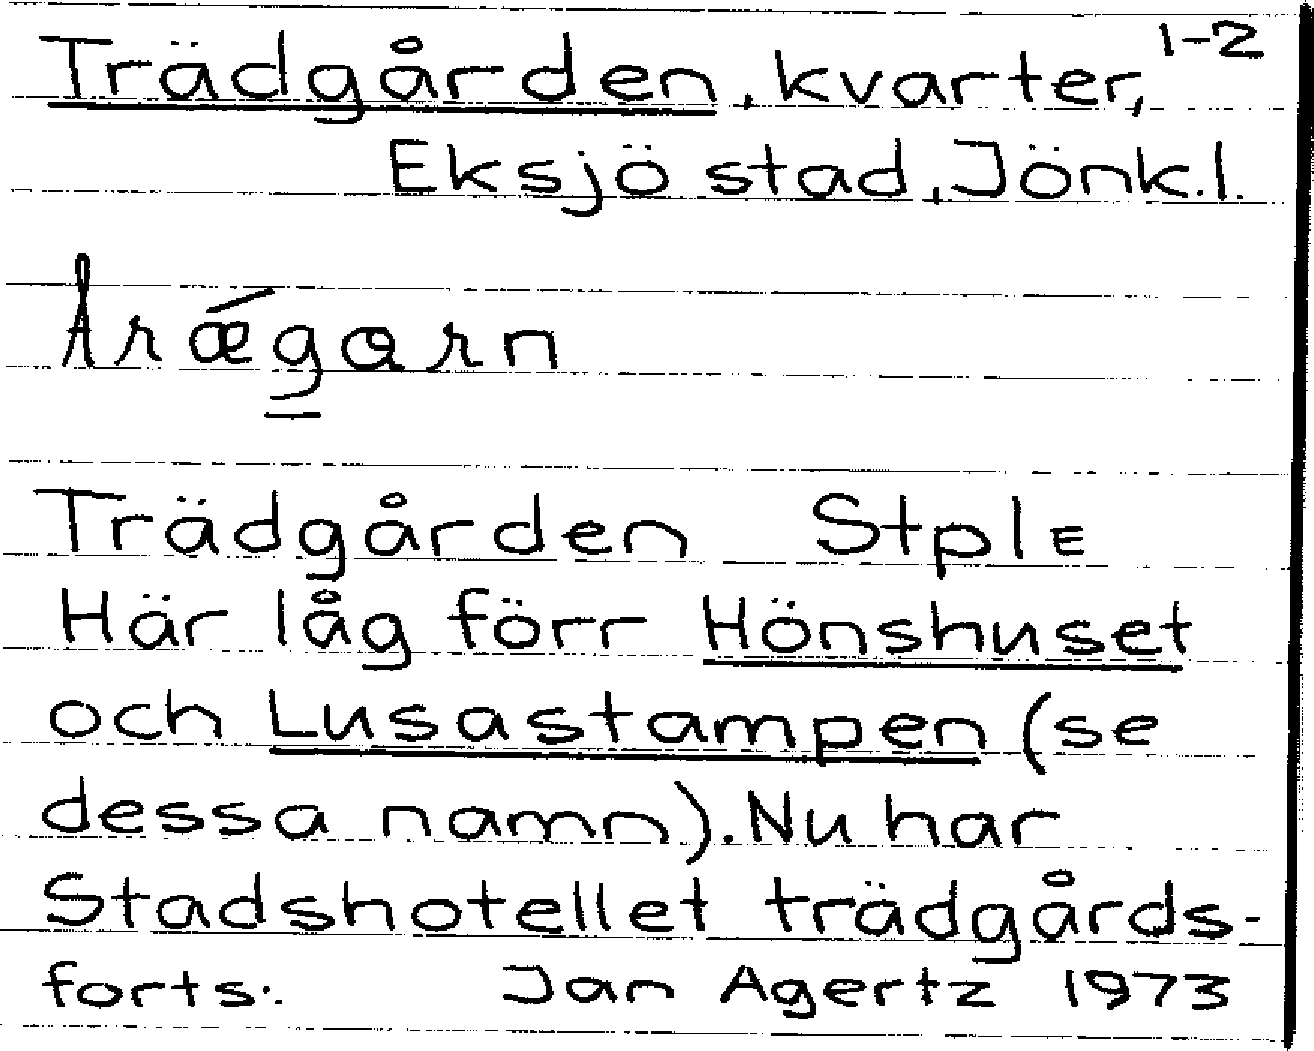 Trädgården, kvarter, 1-2
Eksjö stad, Jönk.l.
trǽgarn
Trädgården StplE
Här låg förr Hönshuset
och Lusastampen (se
dessa namn). Nu har
Stadshotellet trädgårds-
forts. Jan Agertz 1973